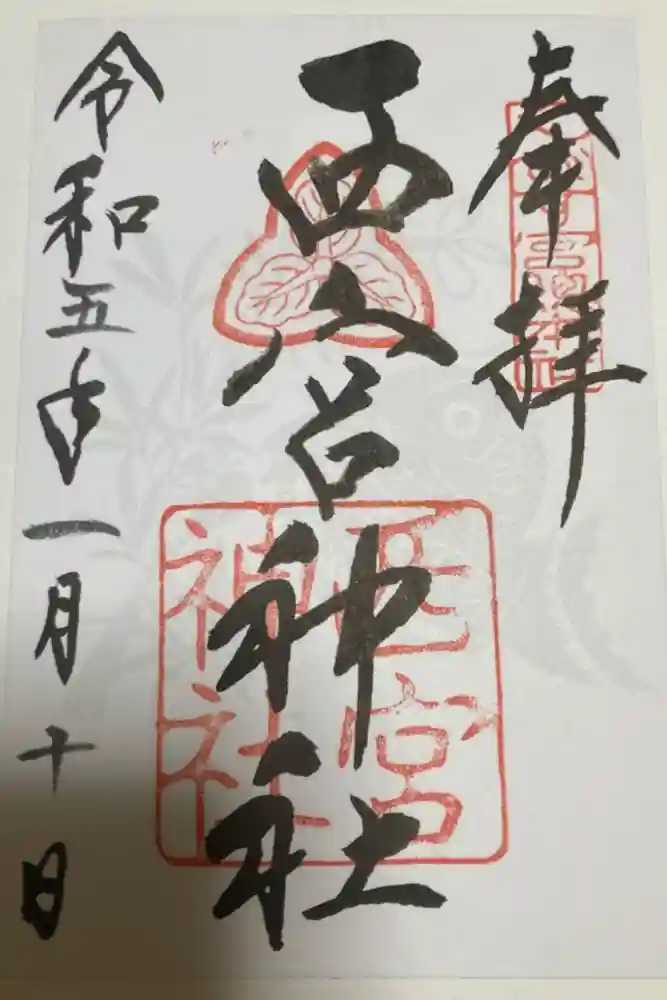 奉拝
西宮神社
令和五年一月十日
西宮
神社